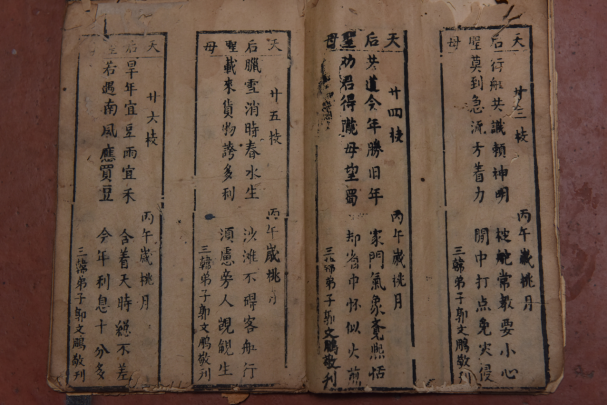 天后聖母
廿三枝 丙午歲桃月
行船共識賴神明 舵常教要小心
莫到急流方着力 閒中打点免災侵
三韓弟子郭文鵬敬刊
天后聖母
廿四枝 丙午歲桃月
共道今年勝旧年 家門氣象竟熙恬
勸君得隴毋望蜀 却 似火煎
三韓弟子郭文鵬敬刊
天后聖母
廿五枝 丙午歲桃月
臘雪消時春水生 沙灘不碍客船行
載來貨物誇多利 須慮旁人覬覦生
三韓弟子郭文鵬敬刊
天后聖母
廿六枝 丙午歲桃月
旱年宜豆雨宜禾 合着天時總不差
若遇南風應買豆 今年利息十分多
三韓弟子郭文鵬敬刊